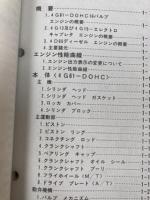 1. 4G61-DOHC16バルブ
エンジンの概要
2. 4G13及び4G15-エレクトロ
キャブレタ エンジンの概要
3. 4D65ディーゼル エンジンの概要
4. 主要諸元
エンジン性能曲線
1. エンジン出力表示の変更について
2. エンジン性能曲線
本 体 (4G61-DOHC)
主 機
1. シリンダ ヘッド
2. シリンダ ヘッド ガスケット
3. ロッカ カバー
4. シリンダ ブロック
主運動部
1. ピストン
2. ピストン リング
3. コネクティング ロッド
4. クランクシャフト
5. ベアリング キャップ
6. クランクシャフト オイル シール
7. クランクシャフト プーリ
8. フライホイール (M/T)
9. ドライブ プレート (A/T)
動弁機構
1. バルブ メカニズム